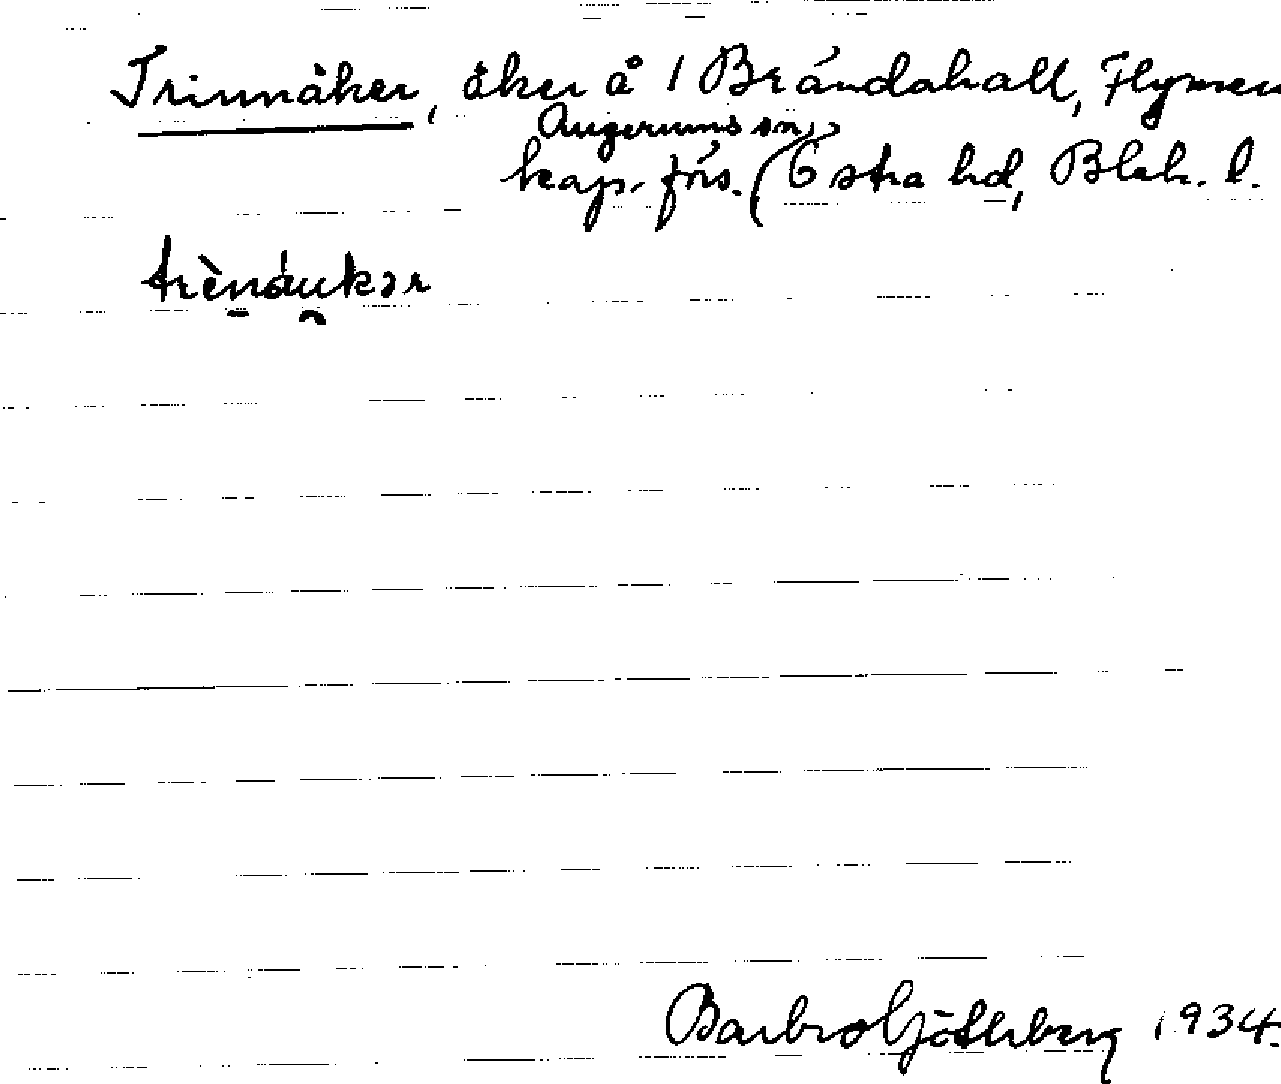 Trinnåker, åker å 1 Brändahall, Flymen
Augerums sn,
kap. förs. (Östra hd, Blek. l.
trènáukər
Barbro Götherberg 1934.